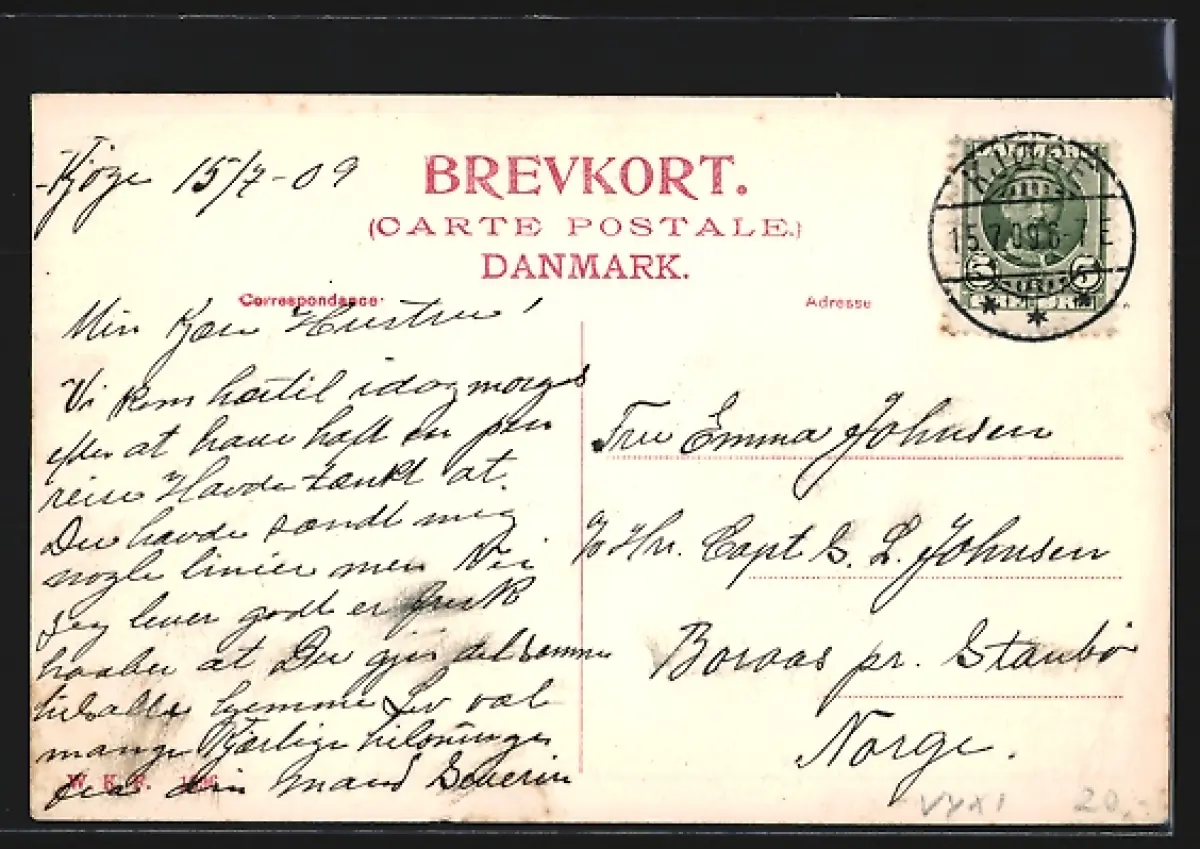 Kjøge 15/7-09
BREVKORT.
(CARTE POSTALE.)
DANMARK.
KJØGE
15.7.09.6-7E
5 5
Correspondance
Adresse
Min Kjære Hustru!
Vi kom hertil idagmorges
efter at have haft en pen
reise Havde tænkt at
Du havde sendt mig
nogle linier men Nei
Jeg lever godt er frisk
haaber at Du gjør det samme
hils alle hjemme Lev vel
mange Kjærlige hilsninger
fra din mand Severin
Fru Emma Johnsen
Hr. Capt G. L. Johnsen
Boroas pr. Staubø
Norge.
W. K. F.
VYX1 20,-